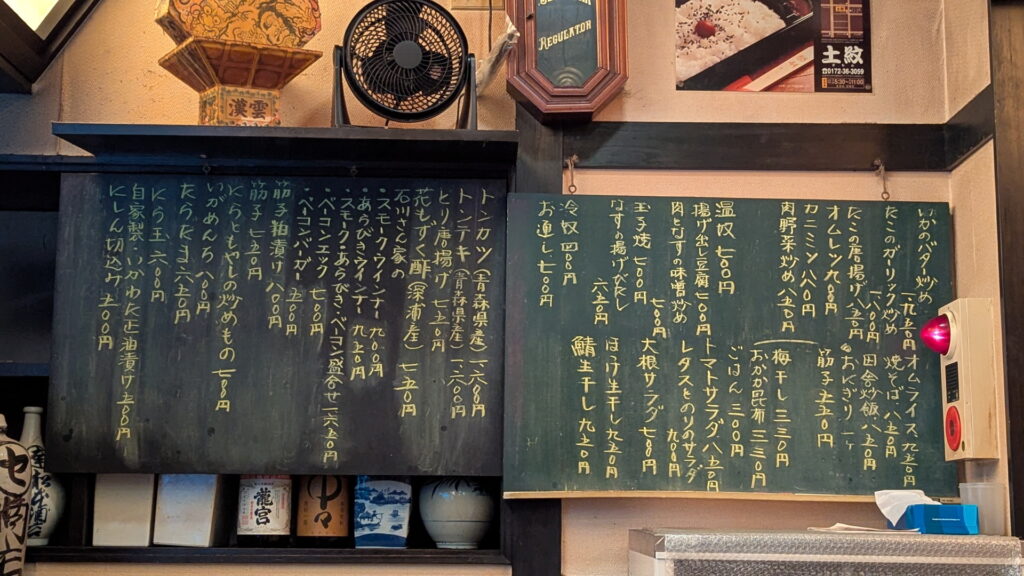 漢雲
REGULATOR
土紋
☎0172-36-3059
トンカツ(青森県産)一、六00円
トンテキ(青森県産)一、六00円
とり唐揚げ 七五0円
花もずく酢(深浦産) 七五0円
石川さん家の
・スモークウインナー 九00円
・あらびきウインナー 九五0円
・スモークあらびき、ベーコン盛合せ 一六五0円
・ベーコンエッグ 七00円
・ベーコンバーガー 五五0円
筋子粕漬け 八00円
筋子 七五0円
にらともやしの炒めもの 七00円
いがめんち 八00円
たらたたき 六五0円
にら玉 六00円
自家製 いかわた正油漬け 五00円
にしん切込み 五00円
いかのバター炒め 一、九五0円
たこのガーリック炒め 一、八00円
たこの唐揚げ 八五0円
オムレツ 九00円
カニミソ 八八0円
肉野菜炒め 八五0円
温奴 七00円
揚げ出し豆腐 七00円
肉となすの味噌炒め 七00円
玉子焼 七00円
なすの揚げびたし 六五0円
冷奴 四00円
お通し 七00円
オムライス 九五0円
焼そば 八五0円
田舎炒飯 八五0円
おにぎり
筋子 五五0円
梅干し 三三0円
おかか昆布 三三0円
ごはん 三00円
トマトサラダ 八五0円
レタスとのりのサラダ 九00円
大根サラダ 七00円
ほっけ生干し 九五0円
鯖生干し 九五0円
龍宮
中々